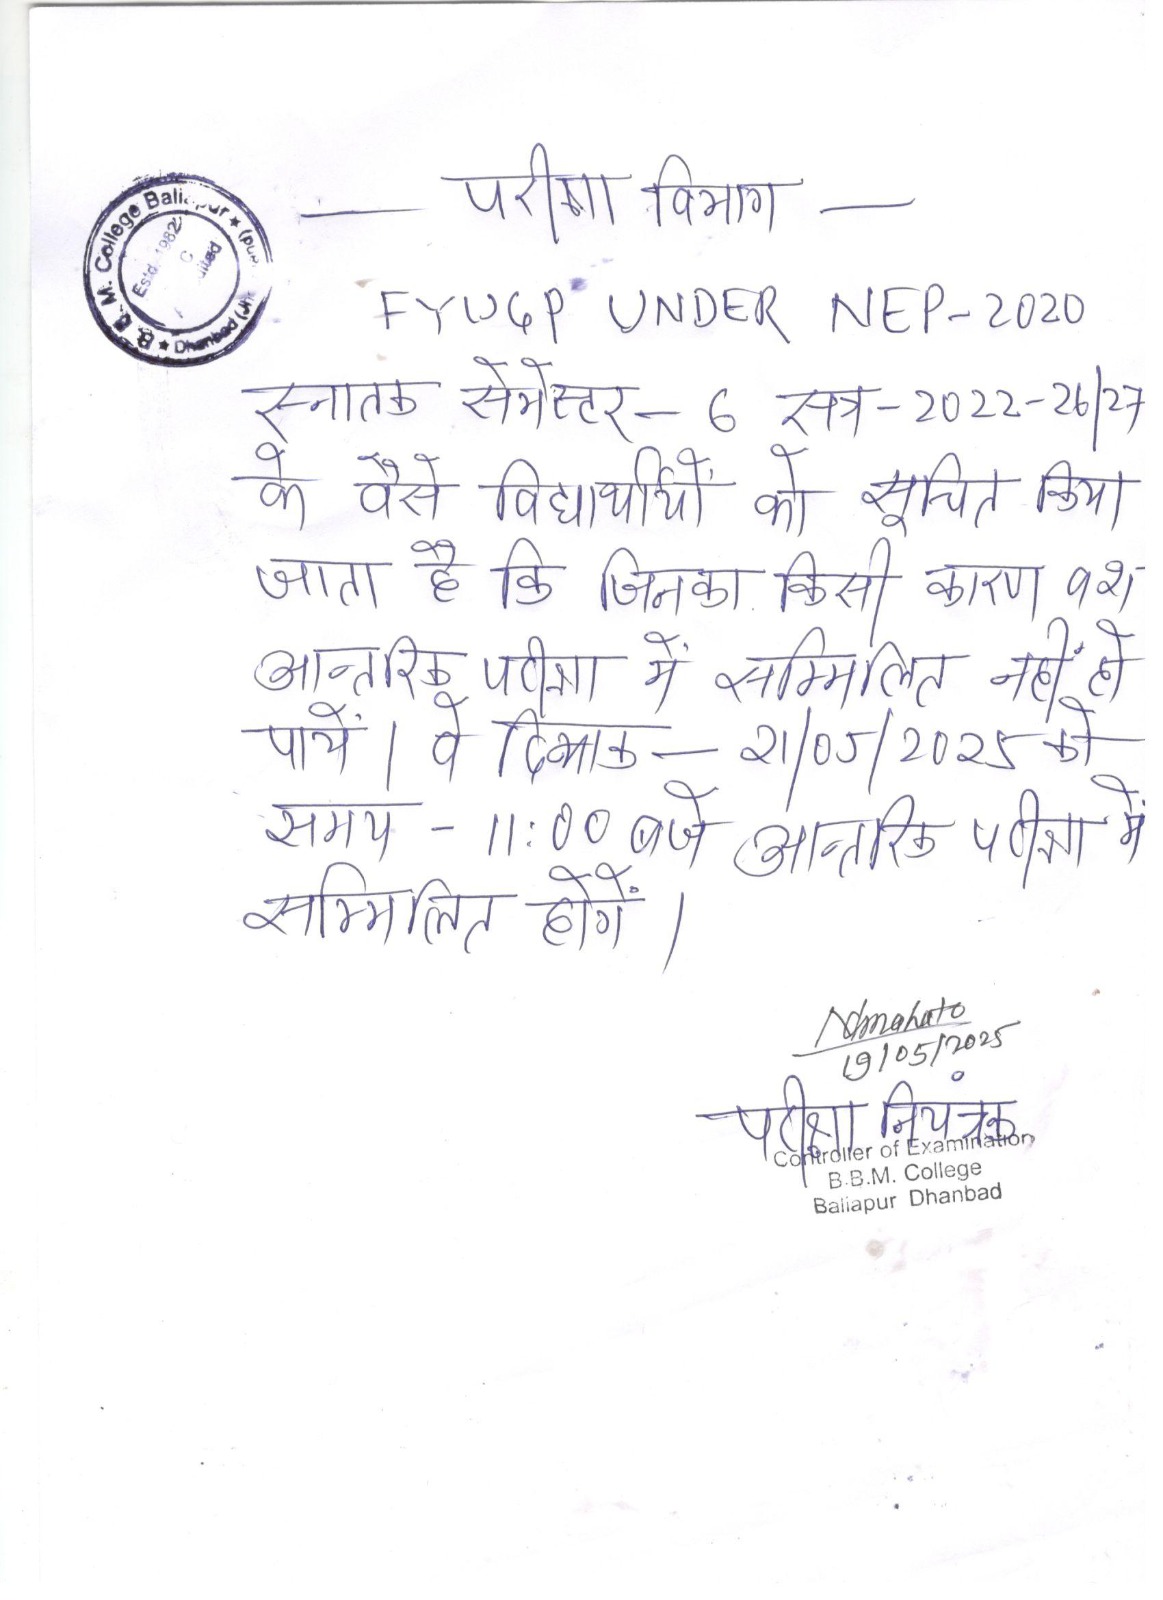 — परीक्षा विभाग —
B. B. M. College Baliapur ★
★ Dhanbad
Estd. 1982
FYUGP UNDER NEP-2020
स्नातक सेमेस्टर- 6 सत्र-2022-26/27
के वैसे विद्यार्थीयों को सूचित किया
जाता है कि जिनका किसी कारण वश
आन्तरिक परीक्षा में सम्मिलित नहीं हो
पायें। वे दिनांक - 21/05/2025 को
समय - 11:00 बजे आन्तरिक परीक्षा में
सम्मिलित होगें।
Ndmahato
19/05/2025
परीक्षा नियंत्रक
Controller of Examination
B.B.M. College
Baliapur Dhanbad